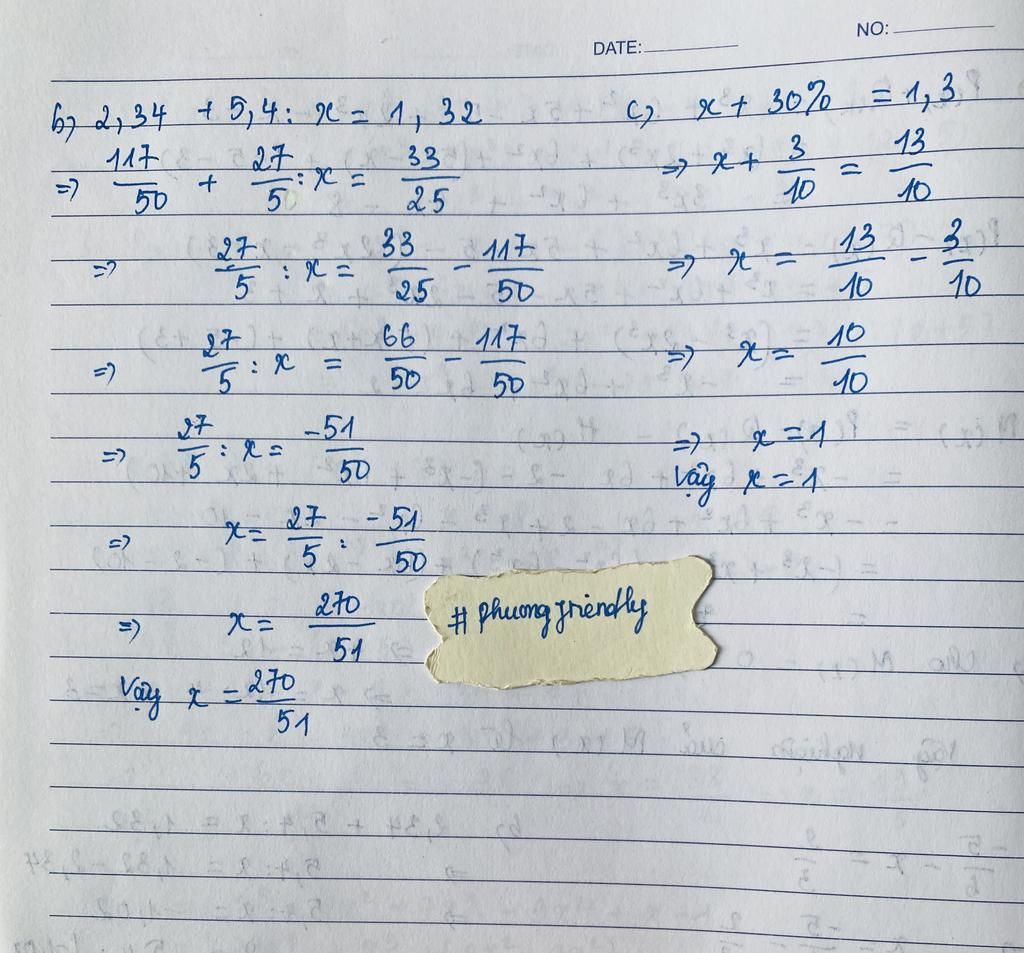 DATE:
NO:
b) 2,34 + 5,4 : x = 1,32
=> 117/50 + 27/5 : x = 33/25
=> 27/5 : x = 33/25 - 117/50
=> 27/5 : x = 66/50 - 117/50
=> 27/5 : x = -51/50
=> x = 27/5 : -51/50
=> x = 270/51
Vậy x = 270/51
c) x + 30% = 1,3
=> x + 3/10 = 13/10
=> x = 13/10 - 3/10
=> x = 10/10
=> x = 1
Vậy x = 1
# phuongfriendly